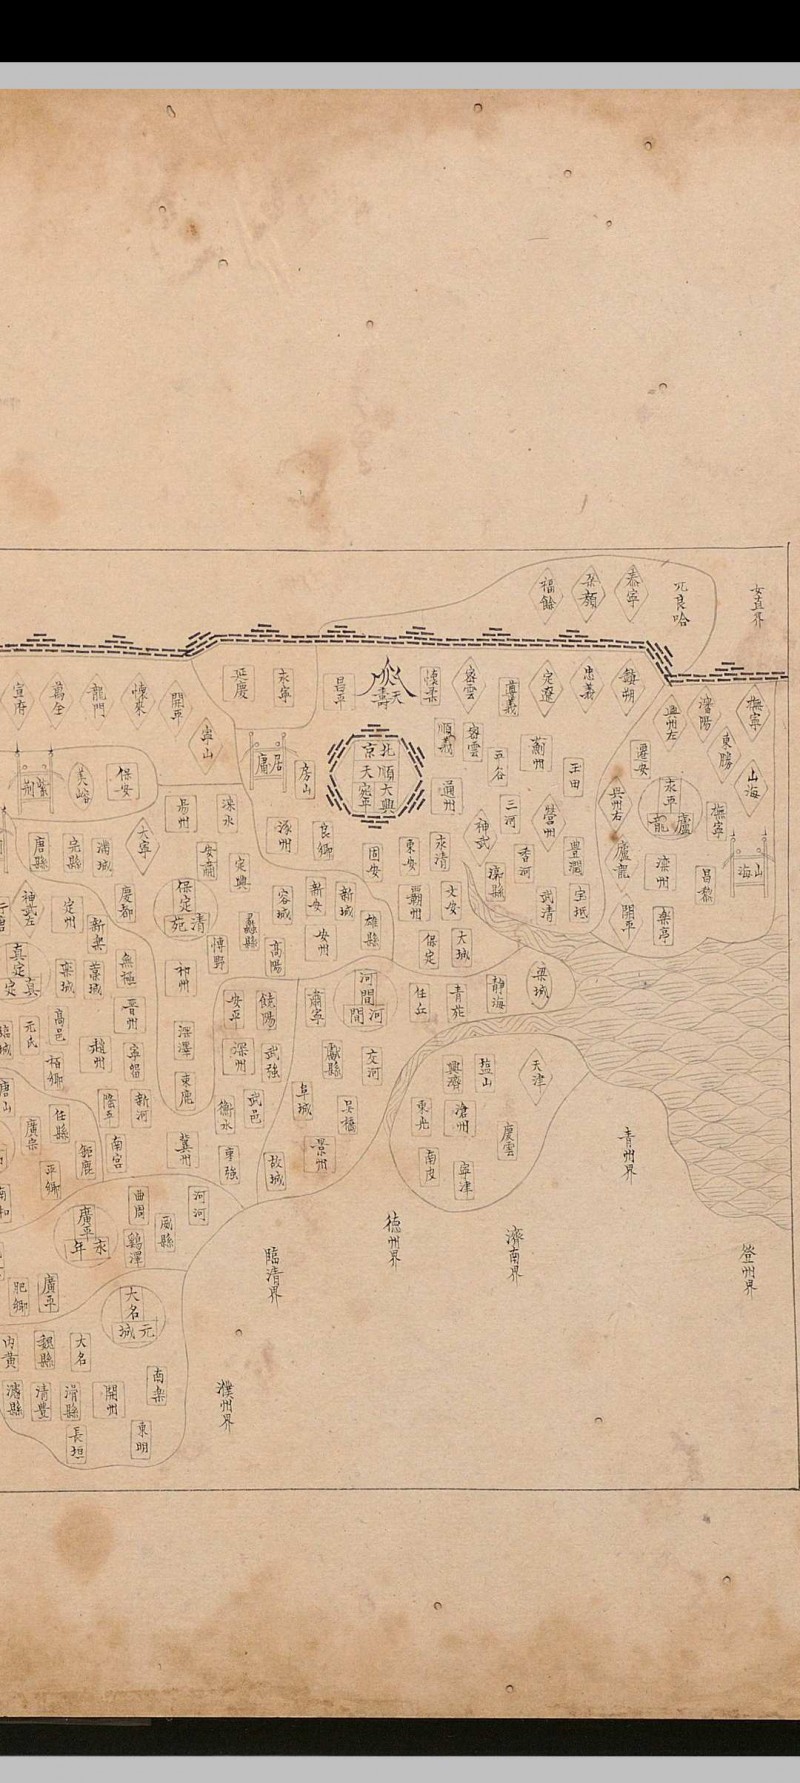 女直界
兀良哈
泰寧
朶顏
福餘
撫寧
瀋陽
東勝
山海
興州左
鎮朔
忠義
定遼
遵義
密雲
懷柔
天壽
昌平
永寧
延慶
開平
懷來
龍門
萬全
宣府
寧山
遷安
永平
盧龍
撫寧
山海
昌黎
灤州
樂亭
興州右
盧龍
開平
玉田
薊州
平谷
密雲
順義
北京
順天
大興
宛平
通州
三河
營州
豐潤
宝坻
武清
香河
神武
漷縣
房山
居庸
紫荊
美峪
保安
涿州
良鄉
固安
東安
永清
霸州
文安
大城
保定
淶水
易州
大寧
滿城
完縣
唐縣
安肅
定興
容城
新安
新城
雄縣
安州
高陽
蠡縣
博野
保定
清苑
慶都
定州
神武左
新樂
真定
真定
欒城
藁城
無極
祁州
晉州
深澤
束鹿
安平
饒陽
深州
武強
衡水
武邑
棗強
冀州
河間
河間
肅寧
任丘
青苑
靜海
梁城
獻縣
交河
阜城
吳橋
景州
故城
天津
塩山
興濟
滄州
東光
慶雲
南皮
寧津
元氏
高邑
趙州
栢鄉
寧晉
臨城
唐山
隆平
新河
任縣
廣宗
南宮
鉅鹿
平鄉
南和
廣平
永年
曲周
雞澤
威縣
河河
肥鄉
廣平
大名
元城
大名
魏縣
內黃
南樂
開州
滑縣
清豐
濬縣
長垣
東明
青州界
登州界
濟南界
德州界
臨清界
濮州界